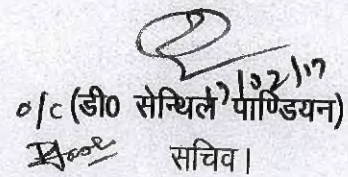 7/02/17
o/c (डी0 सेन्थिल पाण्डियन)
सचिव।